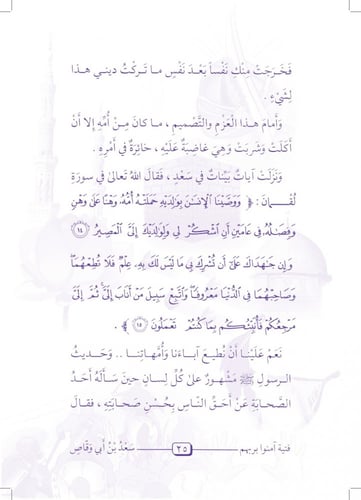 فَخَرَجَتْ مِنْكِ نَفْساً بَعْدَ نَفْسٍ ما تَركْتُ ديني هذا
لِشَيْءٍ .
وَأَمامَ هذا الْعَزْمِ والتَّصْميمِ ، ما كانَ مِنْ أُمِّهِ إلا أَنْ
أَكَلَتْ وَشَرِبَتْ وَهِيَ غاضِبَةٌ عَلَيْهِ ، حائِرَةٌ في أَمْرِهِ .
وَنَزَلَتْ آياتٌ بَيِّناتٌ في سَعْدٍ ، فَقالَ اللهُ تَعالى في سورَةِ
لُقْمـانَ : ﴿ وَوَصَّيْنَا ٱلْإِنسَٰنَ بِوَٰلِدَيْهِ حَمَلَتْهُ أُمُّهُۥ وَهْنًا عَلَىٰ وَهْنٍ
وَفِصَٰلُهُۥ فِى عَامَيْنِ أَنِ ٱشْكُرْ لِى وَلِوَٰلِدَيْكَ إِلَىَّ ٱلْمَصِيرُ ﴿١٤﴾
وَإِن جَٰهَدَاكَ عَلَىٰٓ أَن تُشْرِكَ بِى مَا لَيْسَ لَكَ بِهِۦ عِلْمٌ فَلَا تُطِعْهُمَا
وَصَاحِبْهُمَا فِى ٱلدُّنْيَا مَعْرُوفًا وَٱتَّبِعْ سَبِيلَ مَنْ أَنَابَ إِلَىَّ ثُمَّ إِلَىَّ
مَرْجِعُكُمْ فَأُنَبِّئُكُم بِمَا كُنتُمْ تَعْمَلُونَ ﴿١٥﴾ ﴾ .
نَعَمْ عَلَيْنا أَنْ نُطيعَ آباءَنا وَأُمَّهاتِنا .. وَحَديثُ
الرسولِ ﷺ مَشْهورٌ عَلى كُلِّ لِسانٍ حينَ سَأَلَهُ أَحَدُ
الصَّحابَةِ عَنْ أَحَقِّ الناسِ بِحُسْنِ صَحابَتِهِ ، فَقالَ
فتية آمنوا بربهم ٢٥ سَعْدُ بْنُ أَبي وَقّاصٍ